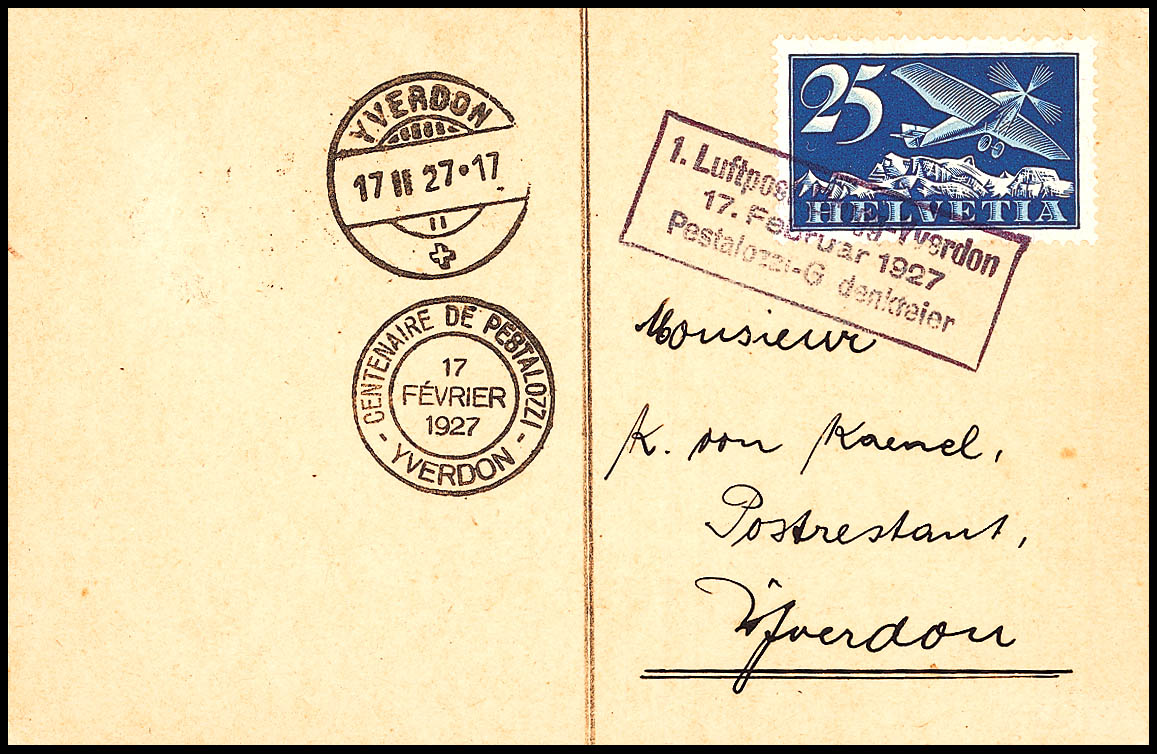 YVERDON
17 II 27•17
CENTENAIRE DE PESTALOZZI
17
FÉVRIER
1927
- YVERDON -
25
HELVETIA
1. Luftpos gg-Yverdon
17. Februar 1927
Pestalozzi-G denkfeier
Monsieur
K. von Kaenel,
Postrestant,
Yverdon